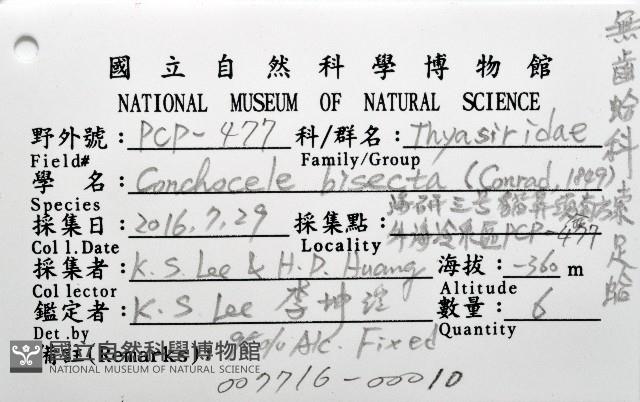 國立自然科學博物館
NATIONAL MUSEUM OF NATURAL SCIENCE
野外號: PCP-477 科/群名: Thyasiridae
Field# Family/Group
學 名: Conchocele bisecta (Conrad, 1849)
Species
採集日: 2016.7.29 採集點: 海研三号
Coll.Date Locality 外海冷泉區PCP-477
採集者: K.S. Lee & H.D. Huang 海拔: -360 m
Collector Altitude
鑑定者: K.S. Lee 李坤瑄 數量: 6
Det.by Quantity
備註(Remarks): 95% Alc. Fixed
007716-00010
無齒蛤科 束足蛤
國立自然科學博物館
NATIONAL MUSEUM OF NATURAL SCIENCE